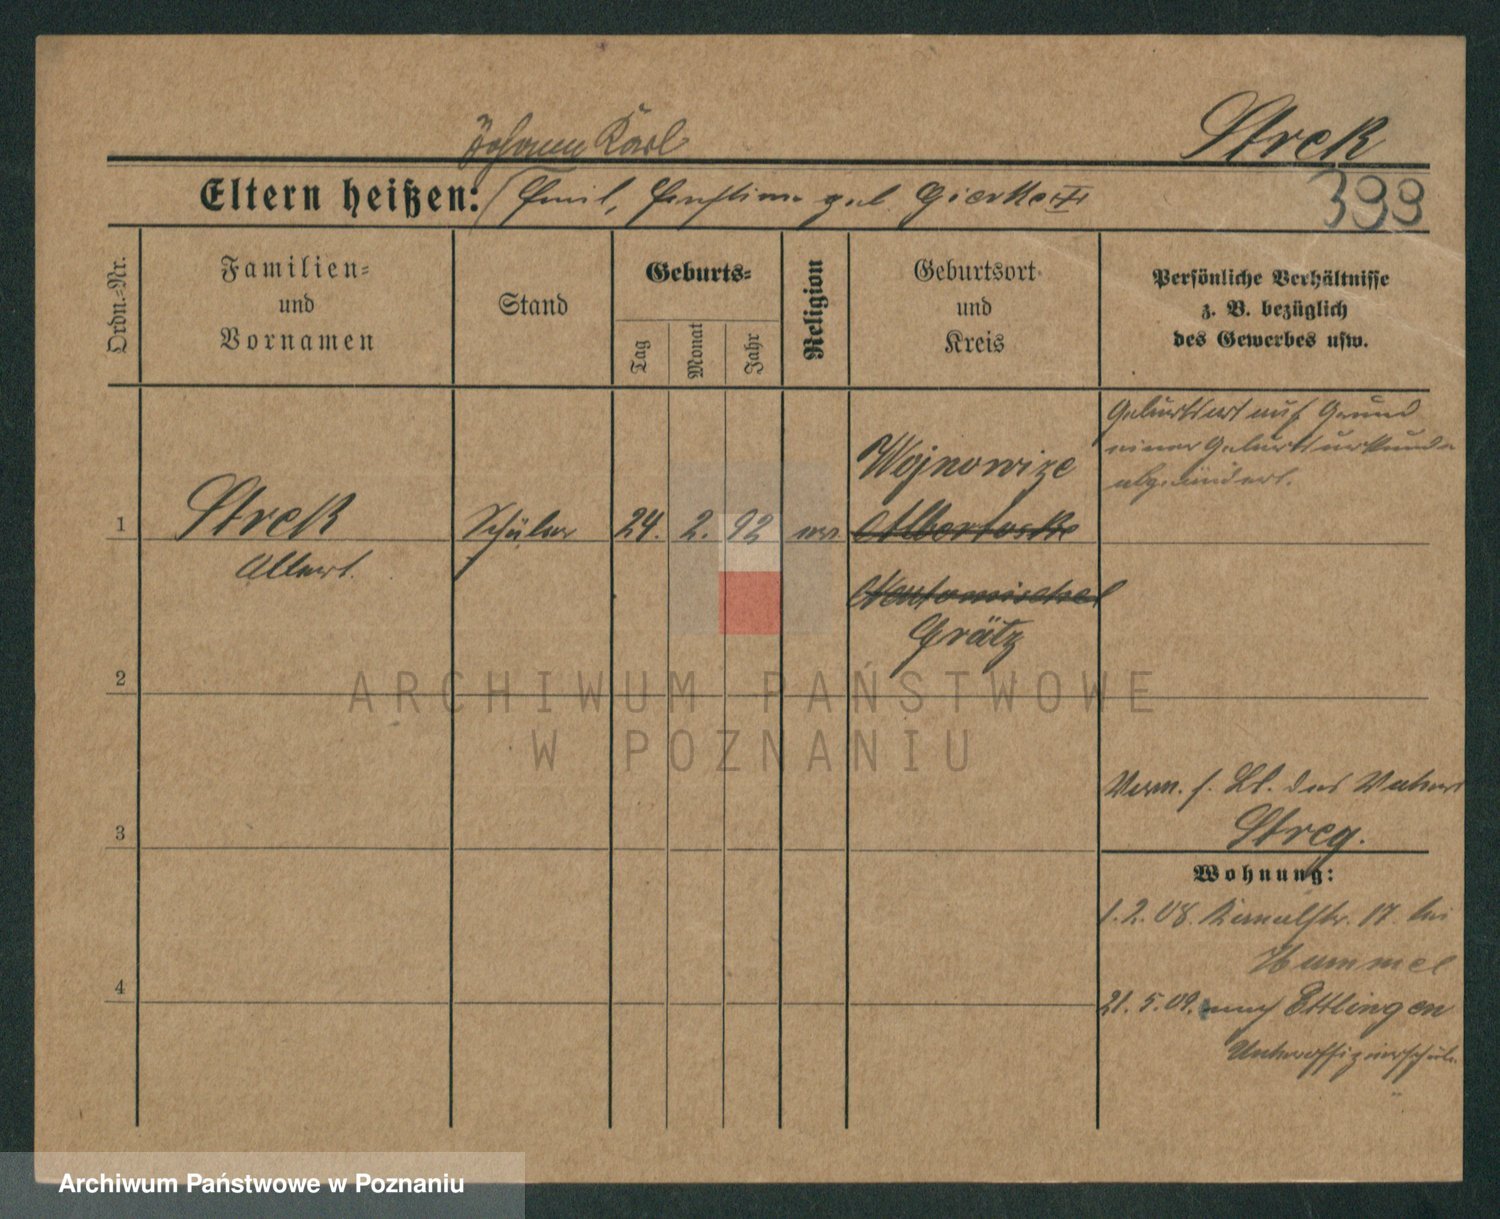 Johann Karl
Strek
Eltern heißen: (Emil, Ernstine geb. Gierke
399
Ordn.-Nr.
Familien-
und
Vornamen
Stand
Geburts-
Tag
Monat
Jahr
Religion
Geburtsort
und
Kreis
Persönliche Verhältnisse
z. B. bezüglich
des Gewerbes usw.
Geburtsort auf Grund
einer Geburtsurkunde
abgeändert.
Wojnowize
1 Strek Schüler 24. 2. 92 ev. Albertoske
Albert.
Neutomischel
Grätz
2
ARCHIWUM PAŃSTWOWE
W POZNANIU
Verm. f. Bl. des Vaters
3 Streg.
Wohnung:
1.2.08. 17. bei
Hummel
4 21.5.09. nach Ettlingen
Unteroffizierschule
Archiwum Państwowe w Poznaniu